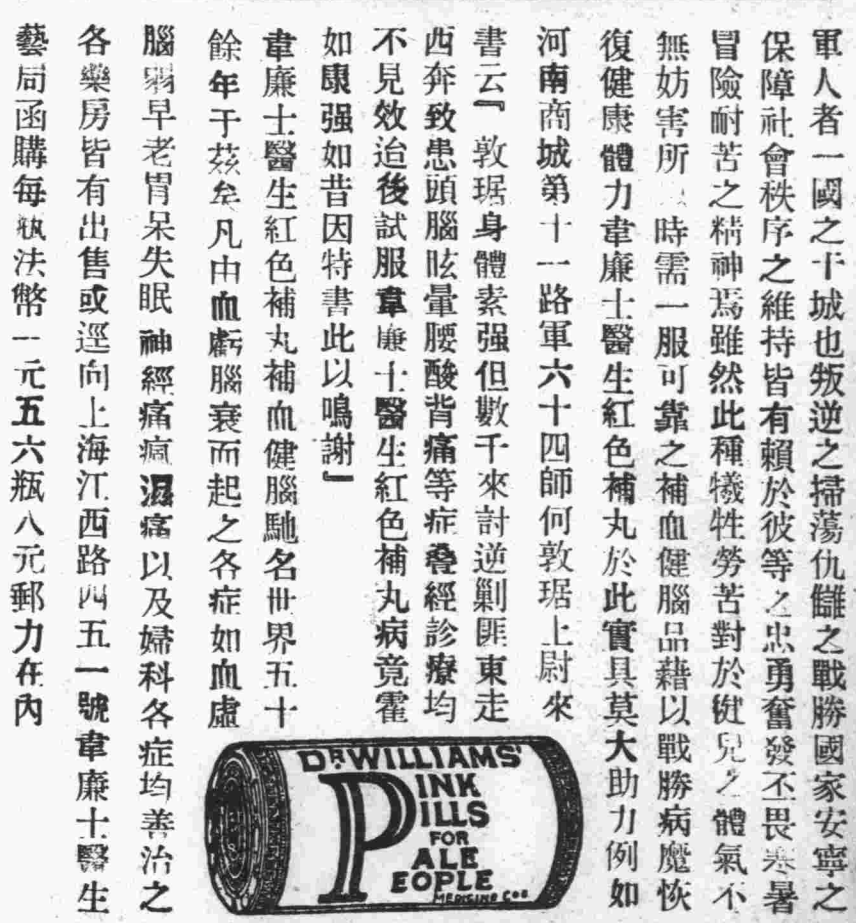 軍人者一國之干城也叛逆之掃蕩仇讎之戰勝國家安寧之
保障社會秩序之維持皆有賴於彼等之忠勇奮發不畏寒暑
冒險耐苦之精神焉雖然此種犧牲勞苦對於健兒之體氣不
無妨害所 時需一服可靠之補血健腦品藉以戰勝病魔恢
復健康體力韋廉士醫生紅色補丸於此實具莫大助力例如
河南商城第十一路軍六十四師何敦琚上尉來
書云『敦琚身體素强但數千來討逆剿匪東走
西奔致患頭腦眩暈腰酸背痛等症叠經診療均
不見效迨後試服韋廉士醫生紅色補丸病竟霍
如康强如昔因特書此以鳴謝』
韋廉士醫生紅色補丸補血健腦馳名世界五十
餘年于茲矣凡由血虧腦衰而起之各症如血虛
腦弱早老胃呆失眠神經痛瘋濕痛以及婦科各症均善治之
各藥房皆有出售或逕向上海江西路四五一號韋廉士醫生
藥局函購每瓶法幣一元五六瓶八元郵力在內
DR WILLIAMS'
PINK
PILLS
FOR
PALE
PEOPLE
MEDICINE Co